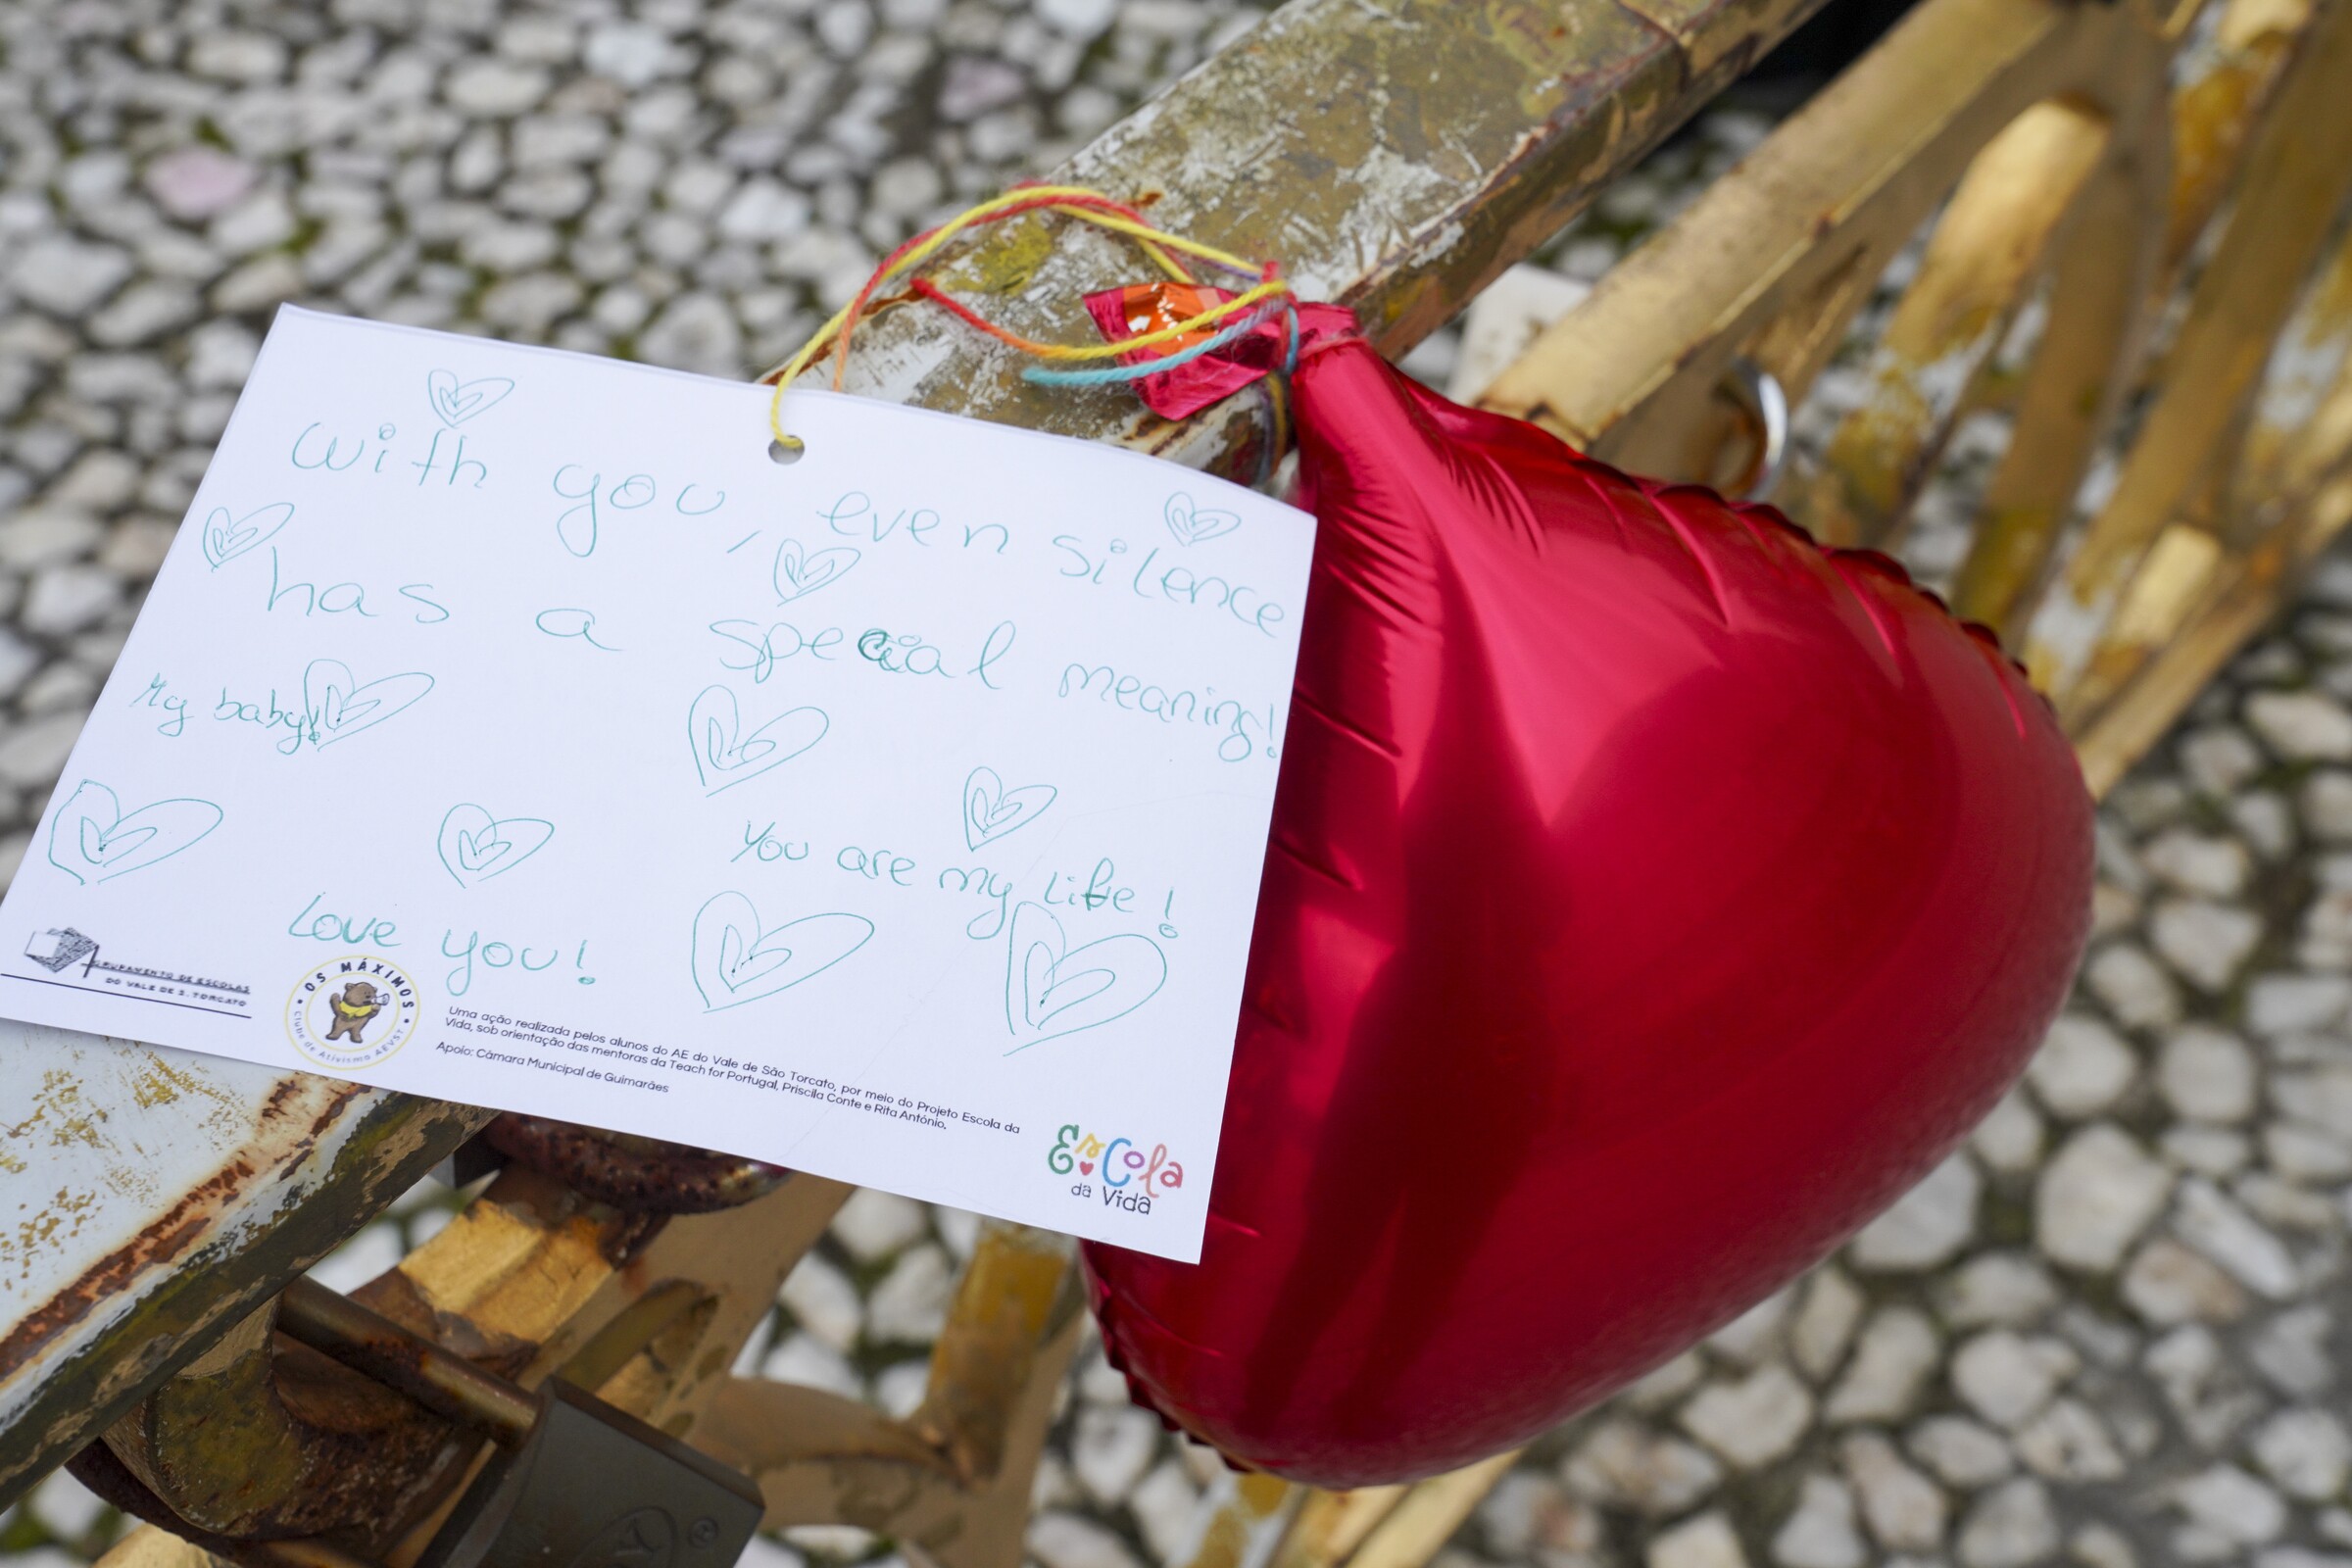 with you, even silence
has a special meaning!
My baby!
You are my life!
Love you!
AGRUPAMENTO DE ESCOLAS
DO VALE DE S. TORCATO
• OS MÁXIMOS •
Clube de Ativismo AEVST
Uma ação realizada pelos alunos do AE do Vale de São Torcato, por meio do Projeto Escola da
Vida, sob orientação das mentoras da Teach for Portugal, Priscila Conte e Rita António.
Apoio: Câmara Municipal de Guimarães
Escola
da Vida